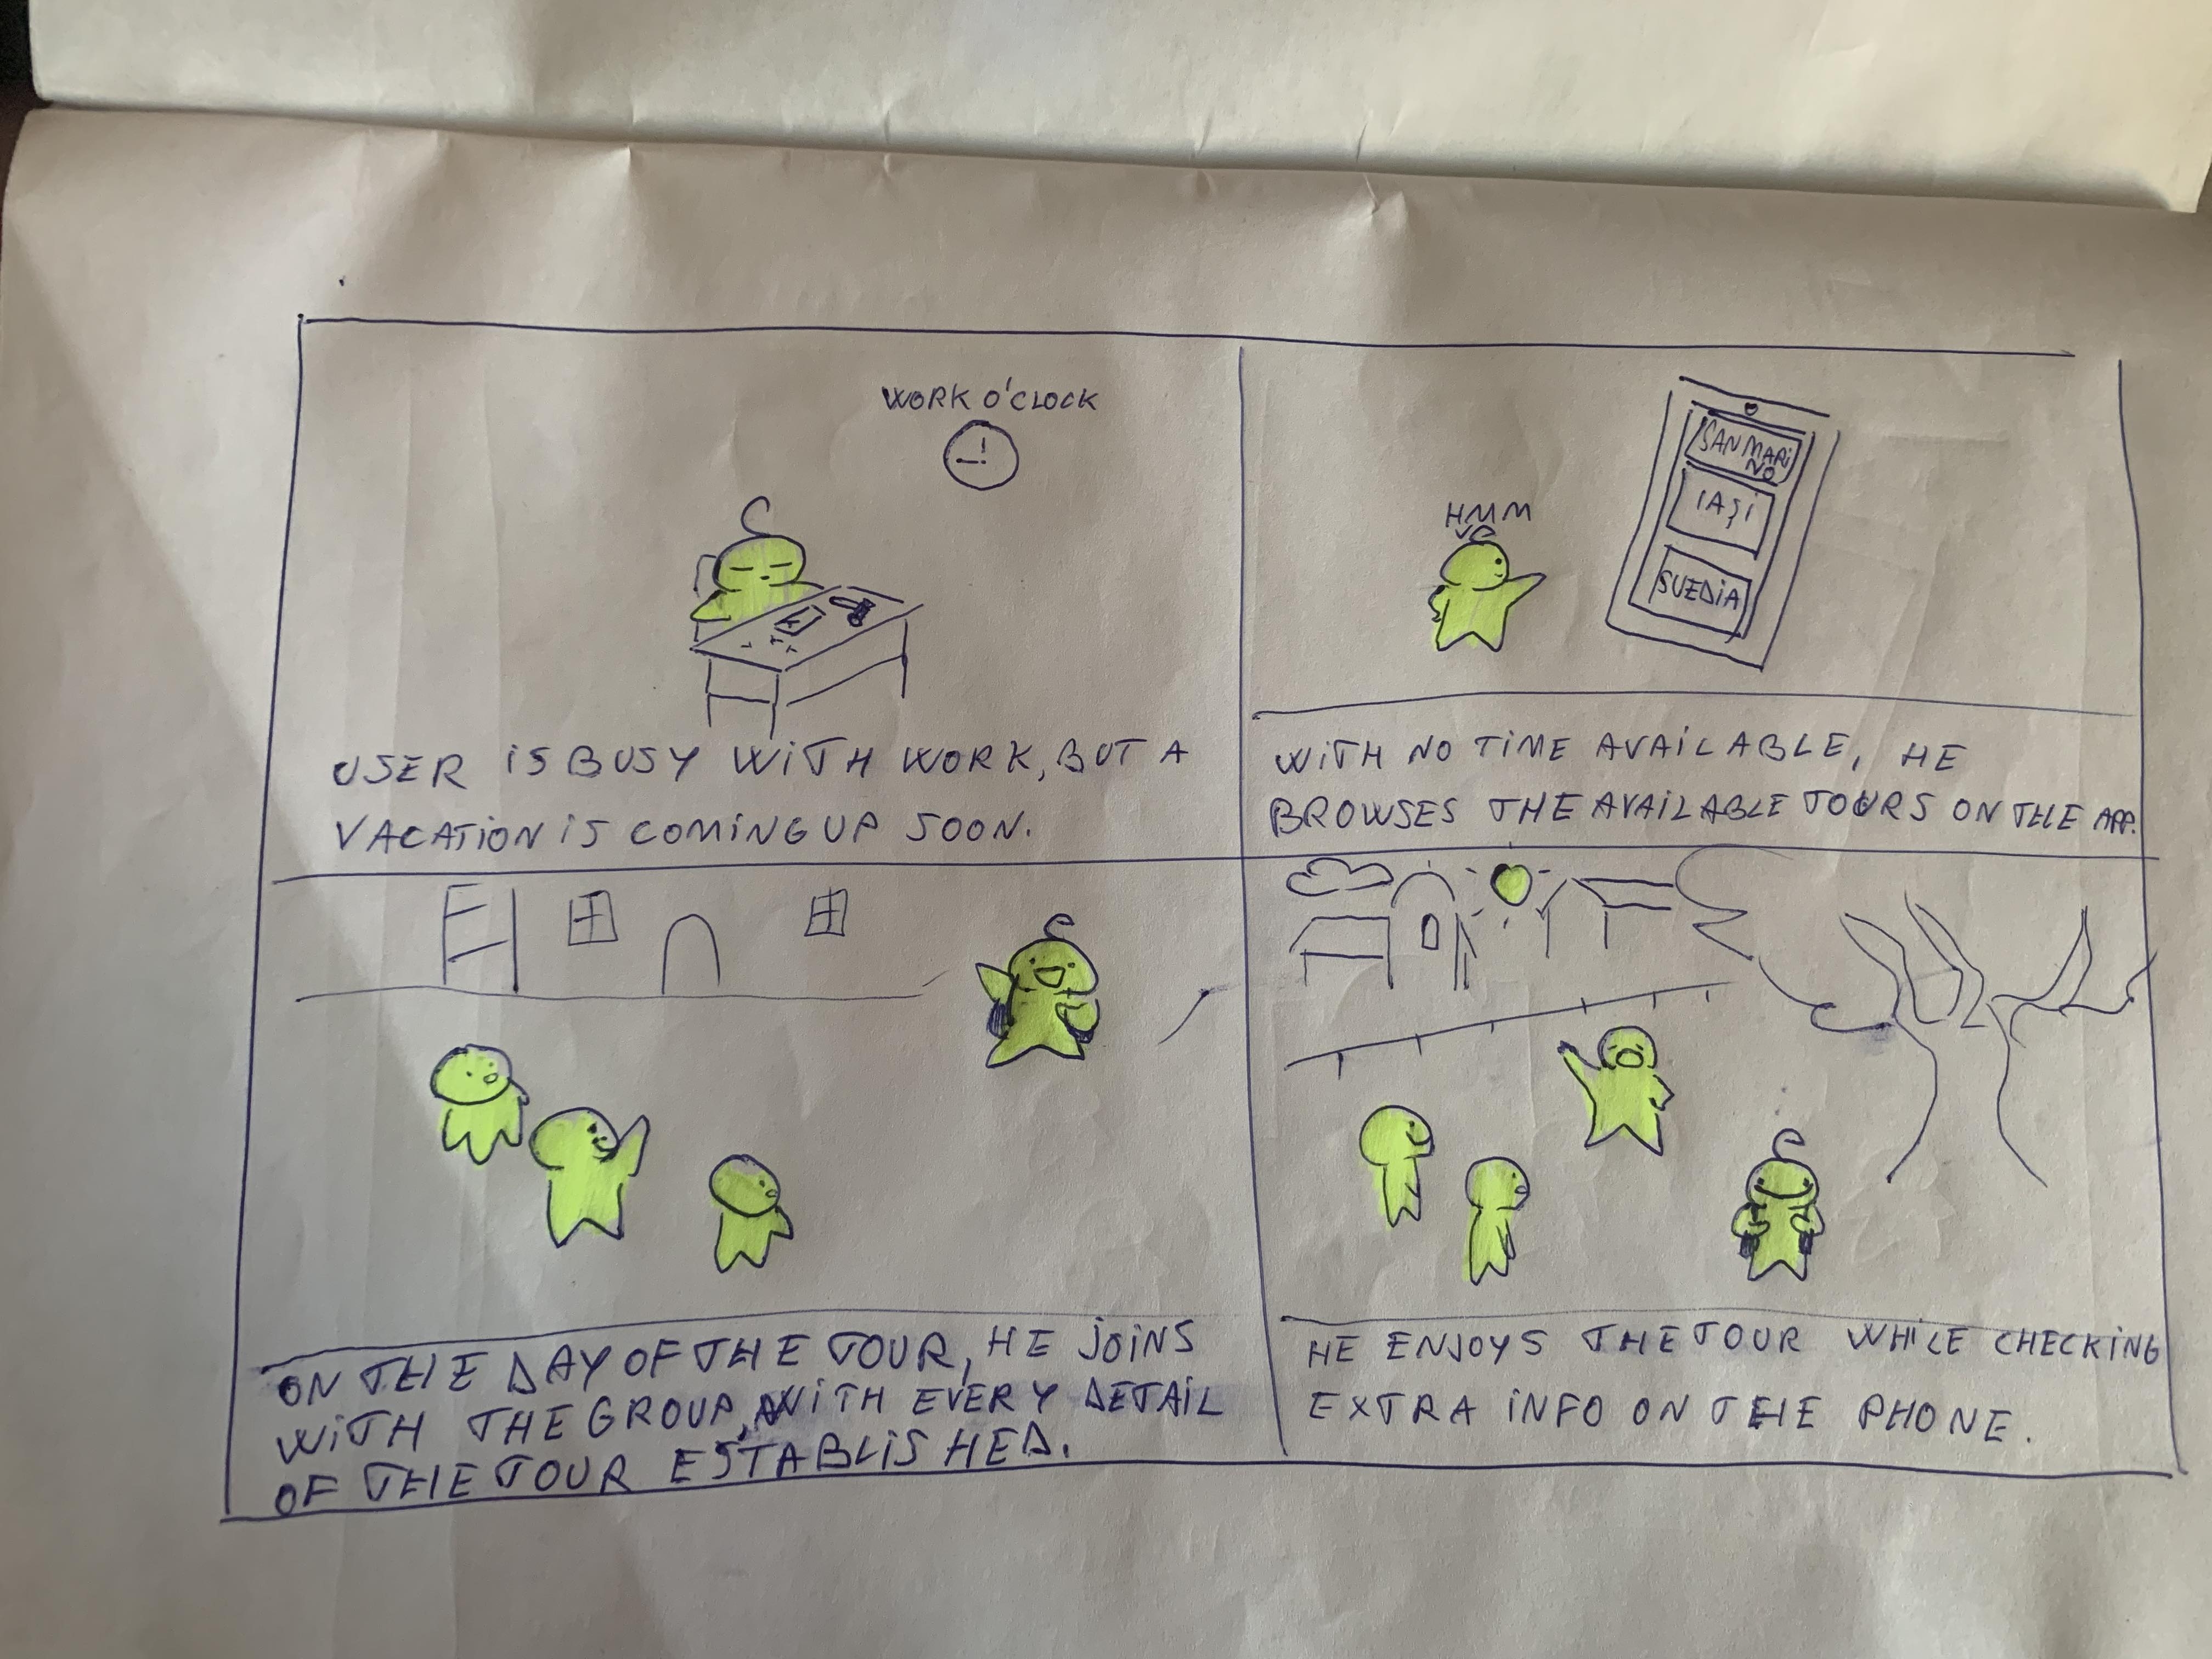 WORK O'CLOCK
USER iS BUSY WiTH WORK, BUT A
VACATiON iS COMiNG UP SOON.
HMM
SAN MARi
NO
IAŞI
SUEDiA
WiTH NO TiME AVAiLABLE, HE
BROWSES THE AVAiLABLE TOURS ON THE APP.
ON THE DAY OF THE TOUR, HE JOiNS
WiTH THE GROUP, WiTH EVERY DETAiL
OF THE TOUR ESTABLiSHED.
HE ENJOYS THE TOUR WHiLE CHECKiNG
EXTRA iNFO ON THE PHONE.